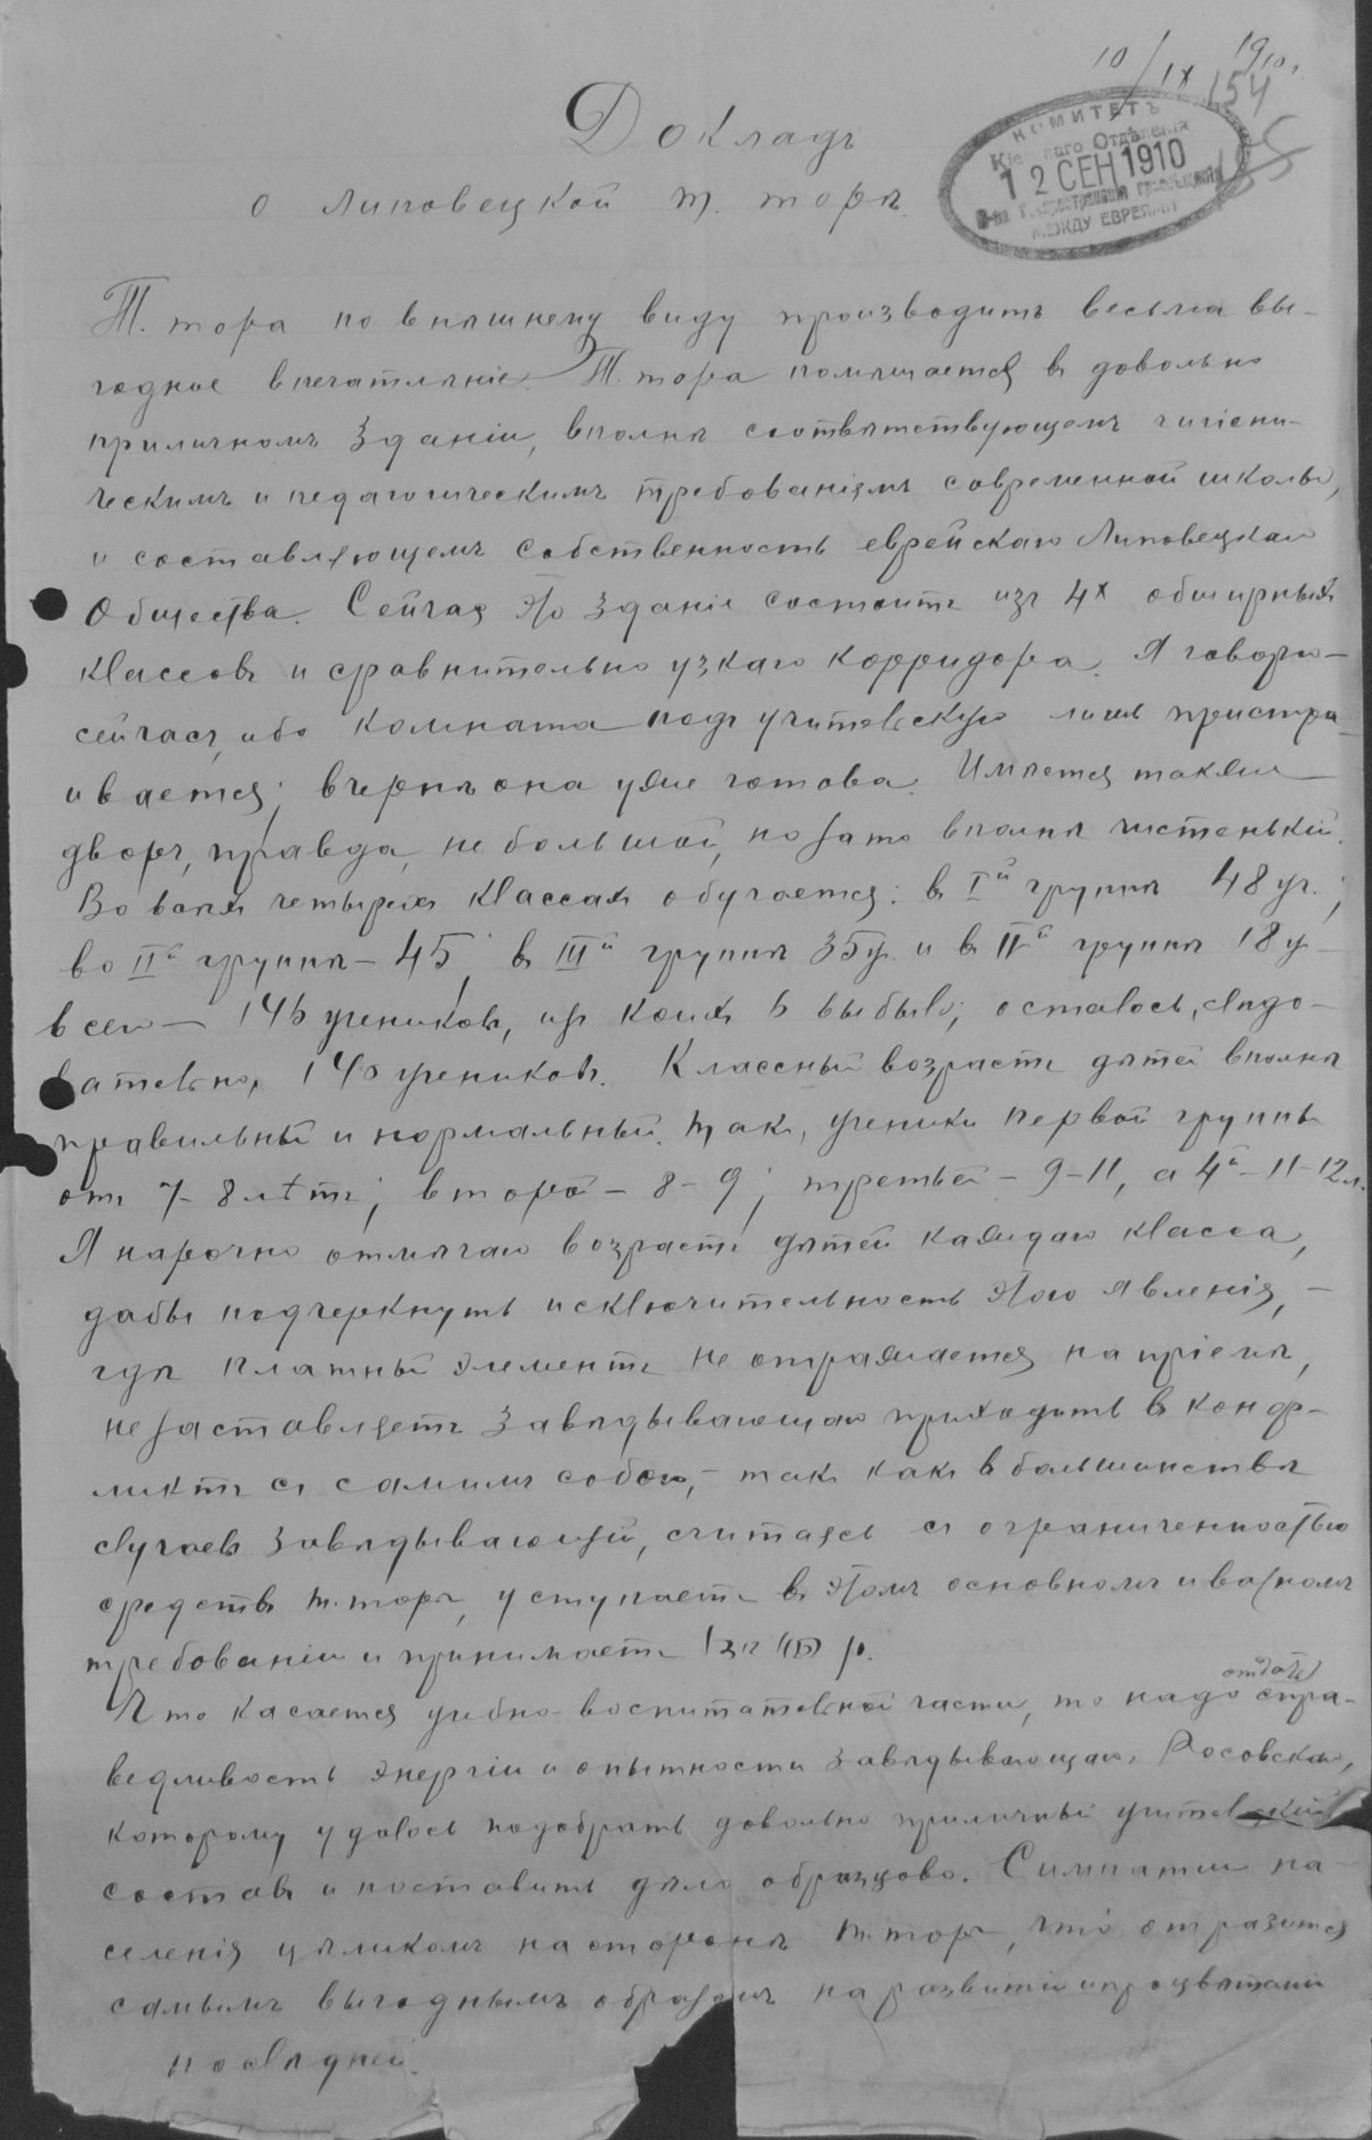 10/IX 1910.
154
КОМИТЕТЪ
Кіевскаго Отдѣленія
12 СЕН 1910
О-ва Распространенія просвѣщенія
МЕЖДУ ЕВРЕЯМИ
Докладъ
о Липовецкой т. торѣ.
Т. тора по внѣшнему виду производитъ весьма вы-
годное впечатлѣніе. Т. тора помѣщается въ довольно
приличномъ зданіи, вполнѣ соотвѣтствующемъ гигіени-
ческимъ и педагогическимъ требованіямъ современной школы,
и составляющемъ собственность еврейскаго Липовецкаго
Общества. Сейчас это зданіе состоитъ изъ 4х обширныхъ
классовъ и сравнительно узкаго корридора. Я говорю-
сейчасъ, ибо комната подъ учительскую лишь пристра-
ивается; вчернѣ она уже готова. Имѣется также
дворъ, правда, небольшой, но зато вполнѣ чистенькій.
Во всѣхъ четырехъ классахъ обучается: въ Iй группѣ 48 уч.;
во IIй группѣ - 45; въ IIIй группѣ 35 уч. и въ IVй группѣ 18 у-
всего - 146 учениковъ, изъ коихъ 6 выбыло; осталось, слѣдо-
вательно, 140 учениковъ. Классный возрастъ дѣтей вполнѣ
правильный и нормальный. Такъ, ученики первой группы
отъ 7-8 лѣтъ; второй - 8-9; третьей - 9-11, а 4й - 11-12 л.
Я нарочно отмѣчаю возрастъ дѣтей каждаго класса,
дабы подчеркнуть исключительность этого явленія, -
гдѣ платный элементъ не отражается на пріемѣ,
не заставляетъ завѣдывающаго приходить въ конф-
ликтъ съ самимъ собою, - такъ какъ въ большинствѣ
случаевъ завѣдывающій, считаясь съ ограниченностью
средствъ т. торы, уступаетъ въ этомъ основномъ и важномъ
требованіи и принимаетъ
Что касается учебно-воспитательной части, то надо отдать спра-
ведливость энергіи и опытности завѣдывающаго, Росовскаго,
которому удалось подобрать довольно приличный учительскій
составъ и поставить дѣло образцово. Симпатіи на-
селенія цѣликомъ на сторонѣ т. торы, что отразится
самымъ выгоднымъ образомъ на развитіи и процвѣтаніи
послѣдней.